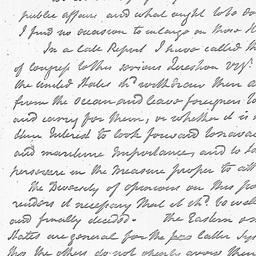 public affairs and what ought to be do
I find no occasion to enlarge on those H
In a late Report I have called the
of congress to this serious Question vizt.
the united States shd. withdraw their a
from the Ocean and leave foreigners to
and carry for them, or whether it is
dure Interest to look forward to naval
and maritime Importance, and to
persevere in the measures proper to att
The Diversity of opinions on this po
renders it necessary that it shd. be well
and finally decided. The Eastern an
States are general for the latter Sys
the others do not openly avow their